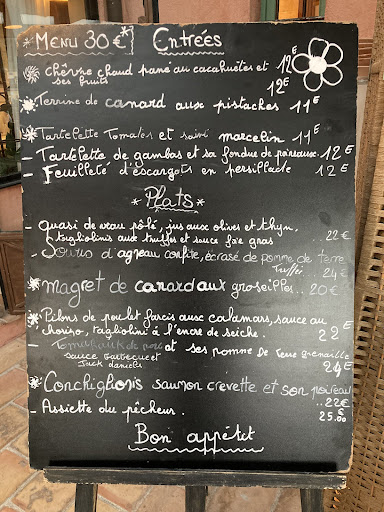 *Menu 30€* Entrées
* Chèvre chaud pané au cacahuètes et 12€
ses fruits 12€
* Terrine de canard aux pistaches 11€
* Tartelette Tomates et saint marcelin 11€
- Tartelette de gambas et sa fondue de poireaux. 12€
- Feuilleté d'éscargots en persillade 12€
*Plats*
- quasi de veau rôti, jus aux olives et thym,
- Tagliolinis aux truffes et sauce foie gras ..22€
Souris d'agneau confite, écrasé de pomme de terre
Truffé .. 24€
* magret de canard aux groseilles.. 20€
* Pilons de poulet farcis aux calamars, sauce au
chorizo, tagliolini à l'encre de seiche. 22€
- Tomahawk de porc et ses pomme de terre grenaille
Sauce barbecue et 24€
Jack daniels
* Conchiglionis saumon crevette et son poireau
..22€
- Assiette du pêcheur. 25.00€
Bon appétit